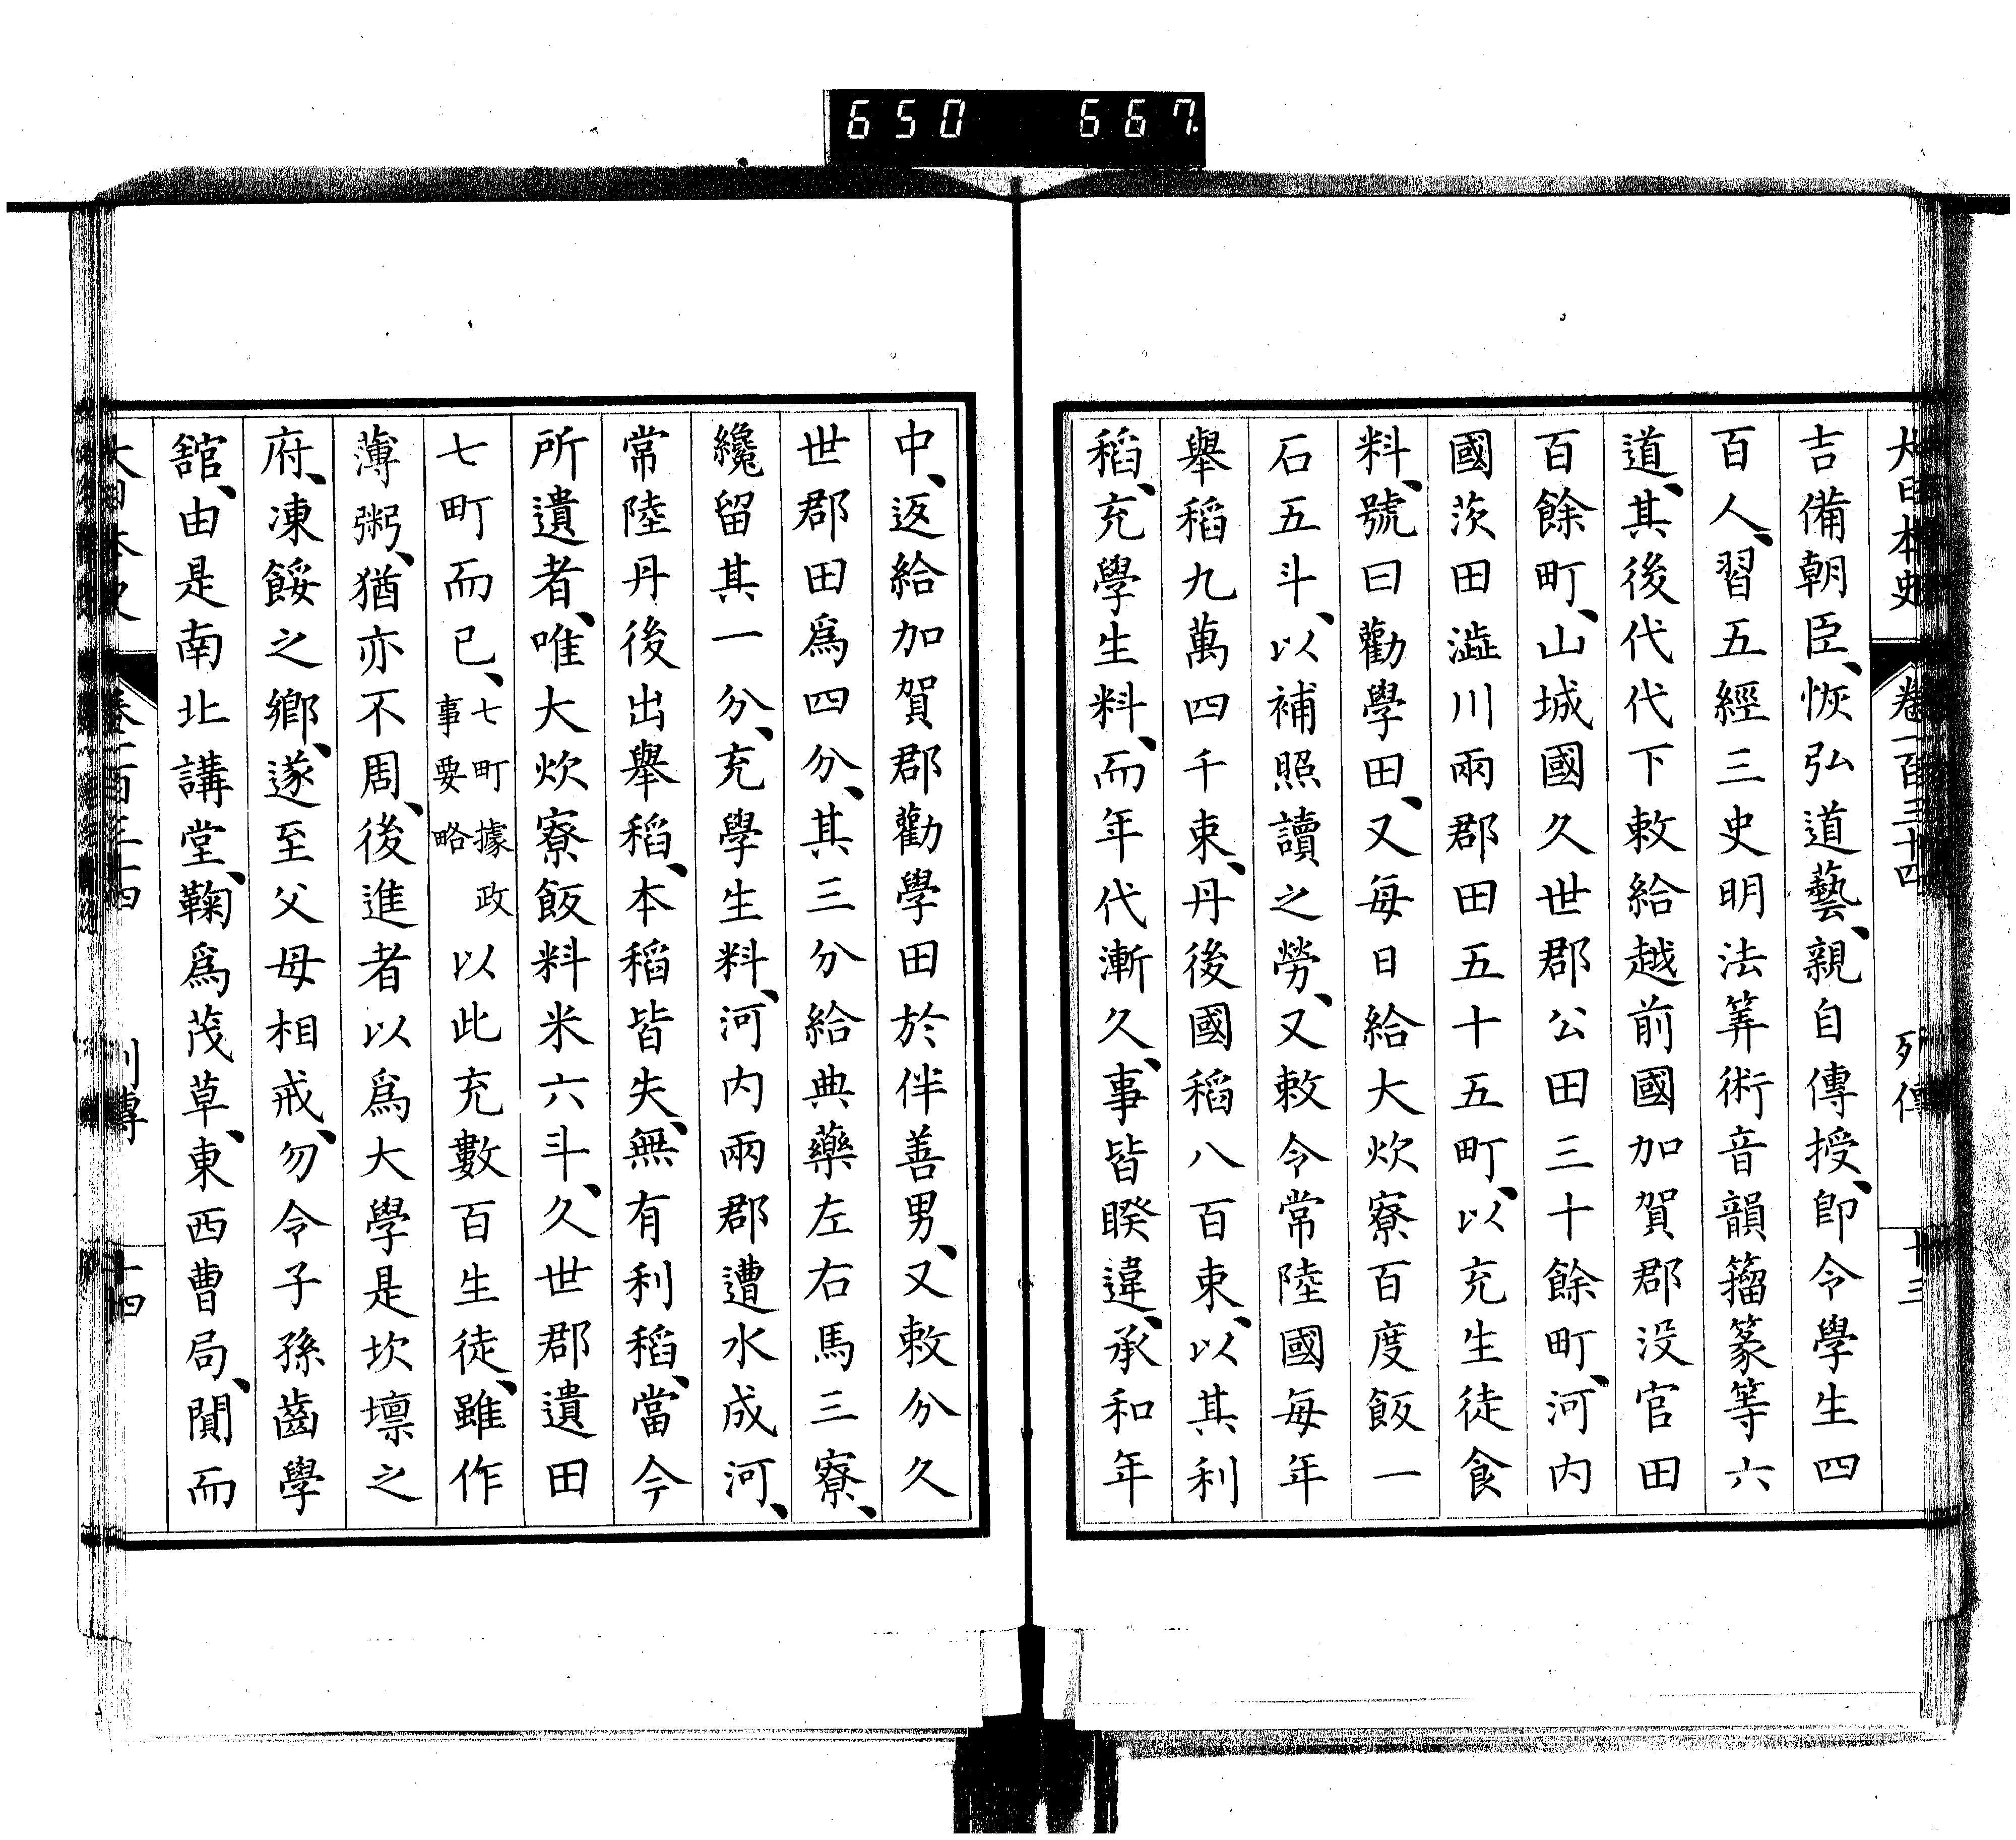 650 667
大日本史 卷一百三十四 列傳 十三
吉備朝臣、恢弘道藝、親自傳授、卽令學生四
百人、習五經三史明法筭術音韻籀篆等六
道、其後代代下敕給越前國加賀郡沒官田
百餘町、山城國久世郡公田三十餘町、河內
國茨田澁川兩郡田五十五町、以充生徒食
料、號曰勸學田、又每日給大炊寮百度飯一
石五斗、以補照讀之勞、又敕令常陸國每年
舉稻九萬四千束、丹後國稻八百束、以其利
稻、充學生料、而年代漸久、事皆睽違、承和年
中、返給加賀郡勸學田於伴善男、又敕分久
世郡田爲四分、其三分給典藥左右馬三寮、
纔留其一分、充學生料、河內兩郡遭水成河、
常陸丹後出舉稻、本稻皆失、無有利稻、當今
所遺者、唯大炊寮飯料米六斗、久世郡遺田
七町而已、七町據政事要略以此充數百生徒、雖作
薄粥、猶亦不周、後進者以爲大學是坎壈之
府、凍餒之鄉、遂至父母相戒、勿令子孫齒學
舘、由是南北講堂、鞠爲茂草、東西曹局、闃而
大日本史 卷一百三十四 列傳 十四